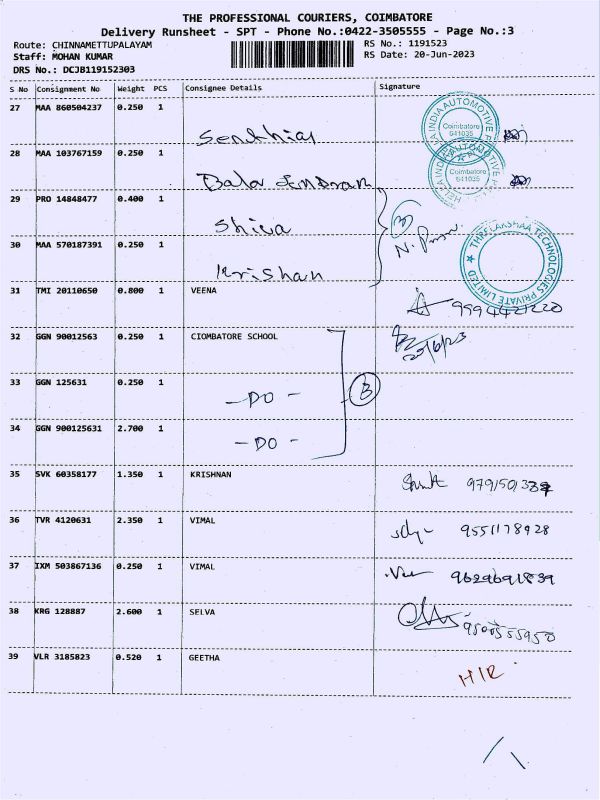 THE PROFESSIONAL COURIERS, COIMBATORE
Delivery Runsheet - SPT - Phone No.:0422-3505555 - Page No.:3
Route: CHINNAMETTUPALAYAM RS No.: 1191523
Staff: MOHAN KUMAR RS Date: 20-Jun-2023
DRS No.: DCJB119152303
S No Consignment No Weight PCS Consignee Details Signature
27 MAA 860504237 0.250 1
HELLA INDIA AUTOMOTIVE
Coimbatore
641035
28 MAA 103767159 0.250 1
HELLA INDIA AUTOMOTIVE
Coimbatore
641035
29 PRO 14848477 0.400 1 Shiva
30 MAA 570187391 0.250 1 Krishan
TECHNOLOGIES PRIVATE LIMITED
31 TMI 20110650 0.800 1 VEENA 9994421220
32 GGN 90012563 0.250 1 CIOMBATORE SCHOOL 20/6/23
33 GGN 125631 0.250 1 -DO- B
34 GGN 900125631 2.700 1 -DO-
35 SVK 60358177 1.350 1 KRISHNAN
36 TVR 4120631 2.350 1 VIMAL 9551178928
37 IXM 503867136 0.250 1 VIMAL 9629691839
38 KRG 128887 2.600 1 SELVA 9500555950
39 VLR 3185823 0.520 1 GEETHA